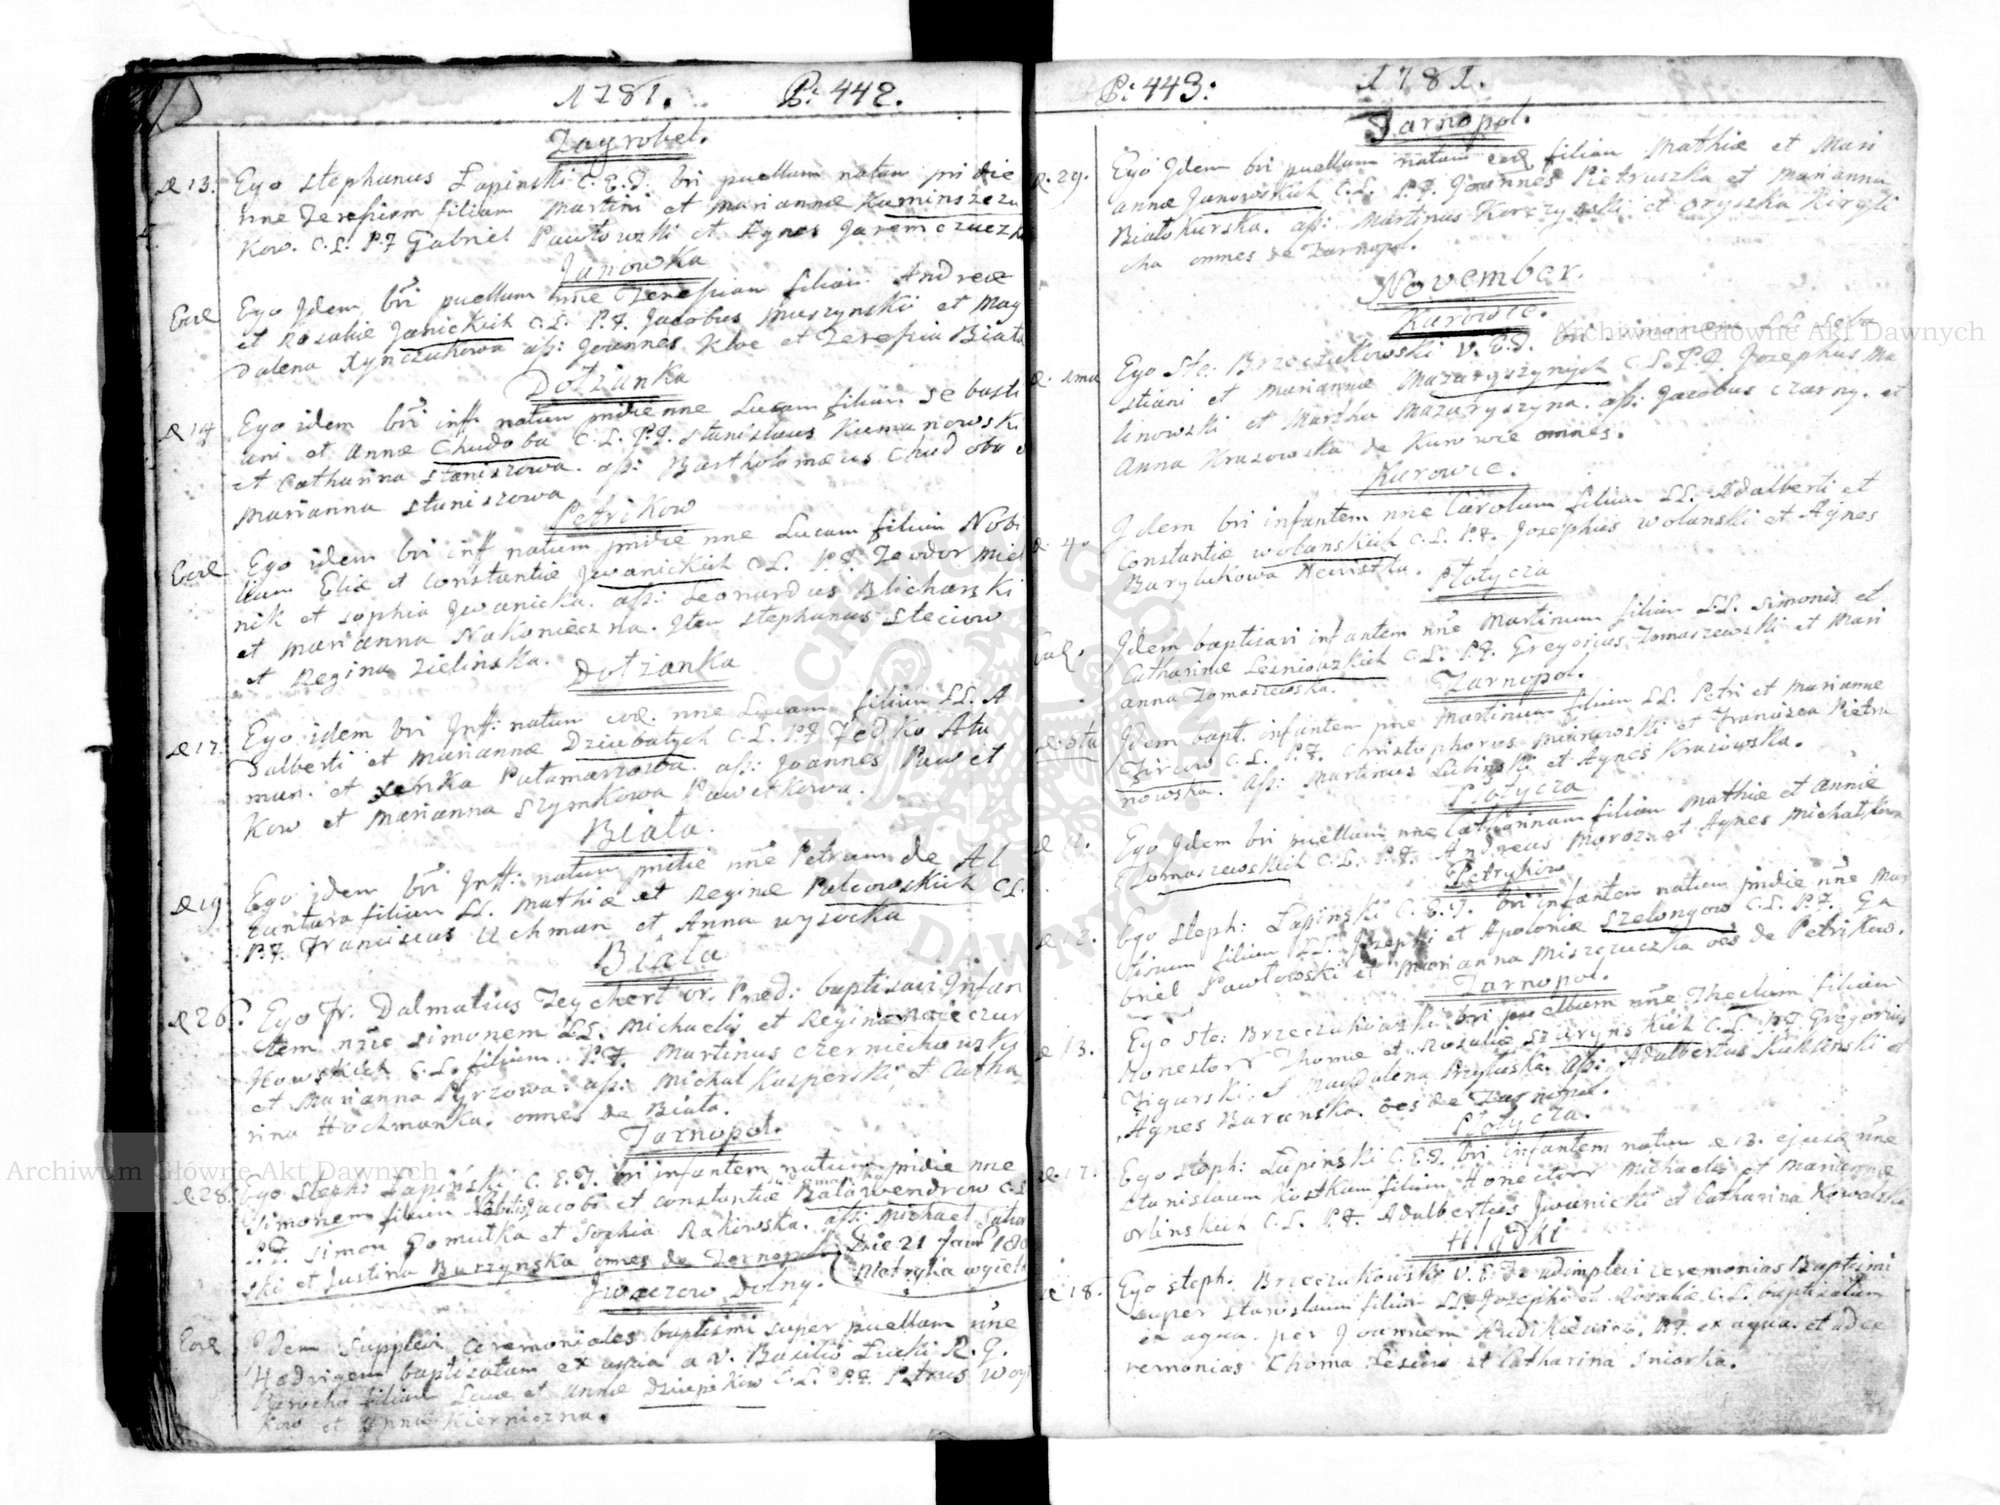 1781. P: 442.
Zagrobel.
d 13. Ego Stephanus Łapinski C. E. T. bti puellam natam pridie
nne Teresiam filiam Martini et Mariannæ Kaminszczu
kow. C. L. P. F Gabriel Pawłowski et Agnes Jaremczuczk
Janowka
Ead Ego Jdem bti puellam nne Teresiam filiam Andreæ
et Rosaliæ Janickich C. L. P. F. Jacobus Muszynski et Mag
dalena Xynczukowa ass: Joannes Kloc et Teresia Biała
Dołzanka
d 14 Ego idem bti inf: natum pridie nne Lucam filium Sebasti
ani et Annæ Chudoba C. L. P. F. Stanislaus Kumanowski
et Catharina Staniszowa. ass: Bartholomæus Chudoba e
Marianna Staniszowa
Petrikow
Ead Ego idem bti inf natum pridie nne Lucam filium Nobi
lium Eliæ et Constantiæ Jwanickich C. L. P. F. Teodor Miel
nik et Sophia Jwanicka. ass: Leonardus Blicharski
et Marianna Nakonieczna. Jtem Stephanus Steciow
et Regina Zielinska.
Dołzanka
d 17. Ego idem bti Jnf: natum ead. nne Lucam filium LL. A
dalberti et Mariannæ Dziubatych C. L. P. F. Fedko Ata
man. et Xenka Pałamarzowa. ass: Joannes Paw et
Kow et Marianna Szymkowa Pawetkowa.
Biała.
d 19 Ego idem bti Jnf: natum pridie nne Petrum de Al
cantara filium LL. Mathiæ et Reginæ Palcowskich C L.
P. F. Franciscus Uchman et Anna Wysocka
Biała
d 26. Ego Fr. Dalmatius Teychert Or. Præd: baptisavi Jnfan
tem nne Simonem LL. Michaelis et Reginæ
Kowskich C. L. filium. P. F. Martinus Czerniechowsky
et Marianna Pyrzowa. ass: Michał Kasperski et Catha
rina Hochmanka. omnes de Biała.
Tarnopol.
d 28. Ego Steph: Łapinski C. E. T. bti infantem natum pridie nne
Simonem filium Nobilis Jacobi et Constantiæ Baławendrow C L
P. F. Simon Gomułka et Sophia Rakowska. ass: Michael
ski et Justina Burzynska omnes de Tarnopol. Die 21 Janr 180
Metryka wyięta
Jwaczow Dolny.
Ead Jdem supplevi ceremoniales baptismi super puellam nne
Hedvigem baptisatam ex aqua a V. Basilio Łucki R. G.
Parocho filiam Lucæ et Annæ C. L. P. F. Petrus Woy
Kow et Anna Kierniczna.
P: 443: 1781.
Tarnopol.
d. 29. Ego Jdem bti puellam natam ead filiam Mathiæ et Mari
annæ Janowskich C. L. P. F. Joannes Pietruszka et Marianna
Białokurska. ass: Martinus Korczynski et Oryszka Kiryli
cha omnes de Tarnopol.
November.
Kurowce.
d. 1ma Ego Ste: Brzeczukowski V. E. T. bti LL Seba
stiani et Mariannæ Mazaryszynych C. L. P. F. Josephus Ma
linowski et Martha Mazaryszyna. ass: Jacobus Czarny. et
Anna Krasowska de Kurowie omnes.
Kurowce.
d. 4. Jdem bti infantem nne Carolum filium LL. Adalberti et
Constantiæ Wolanskich C. L. P. F. Josephus Wolanski et Agnes
Barylukowa Newistka.
Płotycza
Ead. Jdem baptisavi infantem nne Martinum filium LL. Simonis et
Catharinæ Lesniowskich C. L. P. F. Gregorius Tomaszewski et Mari
anna Tomaszewska.
Tarnopol.
Jdem bapt. infantem nne Martinum filium LL. Petri et Mariannæ
Żircow C. L. P. F. Christophorus et Francisca Pietru
nowska. ass: Martinus Lubinski et Agnes Krasowska.
Płotycza
Ego Jdem bti puellam nne Catharinam filiam Mathiæ et Annæ
Tomaszewskich C. L. P. F. Andreas Moroz et Agnes Michałkowa
Petrykow
d 12. Ego Steph: Łapinski C. E. T. bti infantem natum pridie nne Mar
tinum filium LL. Josephi et Apoloniæ Szelongow C. L. P. F. Ga
briel Pawłowski et Marianna Miszczuczka oes de Petrikow.
Tarnopol.
d 13. Ego Ste: Brzeczukowski bti puellam nne Theclam filiam
Honestorr Thomæ et Rosaliæ Szurynskich C. L. P. F. Gregorius
Figurski. et Magdalena Przyłuska. ass: Adalbertus Kuklinski et
Agnes Baranska. oes de Tarnopol.
Płotycza.
d. 17. Ego Steph: Łapinski C. E. T. bti infantem natum d 13. ejusd nne
Stanislaum Kostkam filium Honestorr Michaelis et Mariannæ
Orlinskich C. L. P. F. Adalbertus Jwanicki et Catharina Kowalska
Hładki
d 18. Ego Steph: Brzeczukowski V. E. T. adimplevi ceremonias Baptismi
super Stanislaum filium LL. Josephi et Rosaliæ C. L. baptisatum
ex aqua. per Joannem Hudikiewicz. P. F. ex aqua. et ad ce
remonias Choma Lesiow et Catharina Sniorka.
Archiwum Główne Akt Dawnych
Archiwum Główne Akt Dawnych
ARCHIWUM GŁÓWNE AKT DAWNYCH